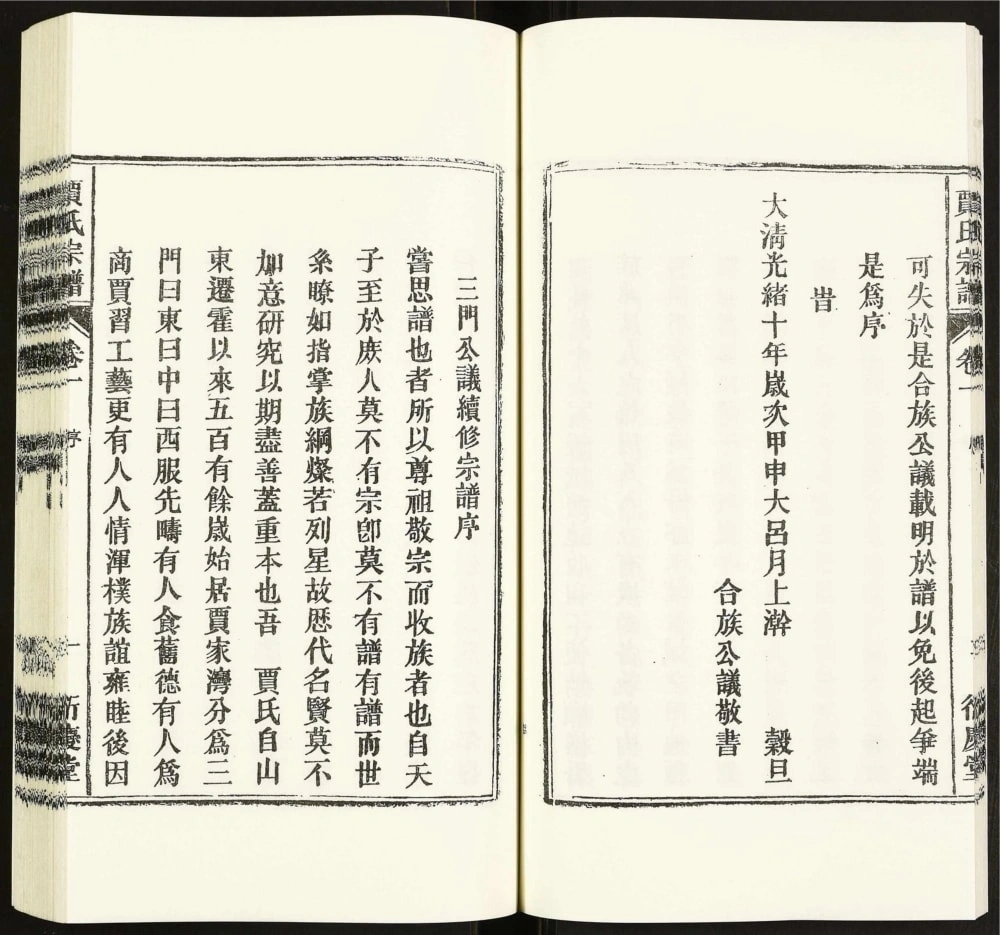 賈氏宗譜 卷一 慶堂
可失於是合族公議載明於譜以免後起爭端
是爲序
旹
大淸光緒十年嵗次甲申大呂月上澣 榖旦
合族公議敬書
三門公議續修宗譜序
嘗思譜也者所以尊祖敬宗而收族者也自天
子至於庶人莫不有宗卽莫不有譜有譜而世
系瞭如指掌族綱燦若列星故歴代名賢莫不
加意硏究以期盡善蓋重本也吾 賈氏自山
東遷霍以來五百有餘嵗始居賈家灣分爲三
門曰東曰中曰西服先疇有人食舊德有人爲
商賈習工藝更有人人情渾樸族誼雍睦後因
賈氏宗譜 卷一 序 一 衍慶堂